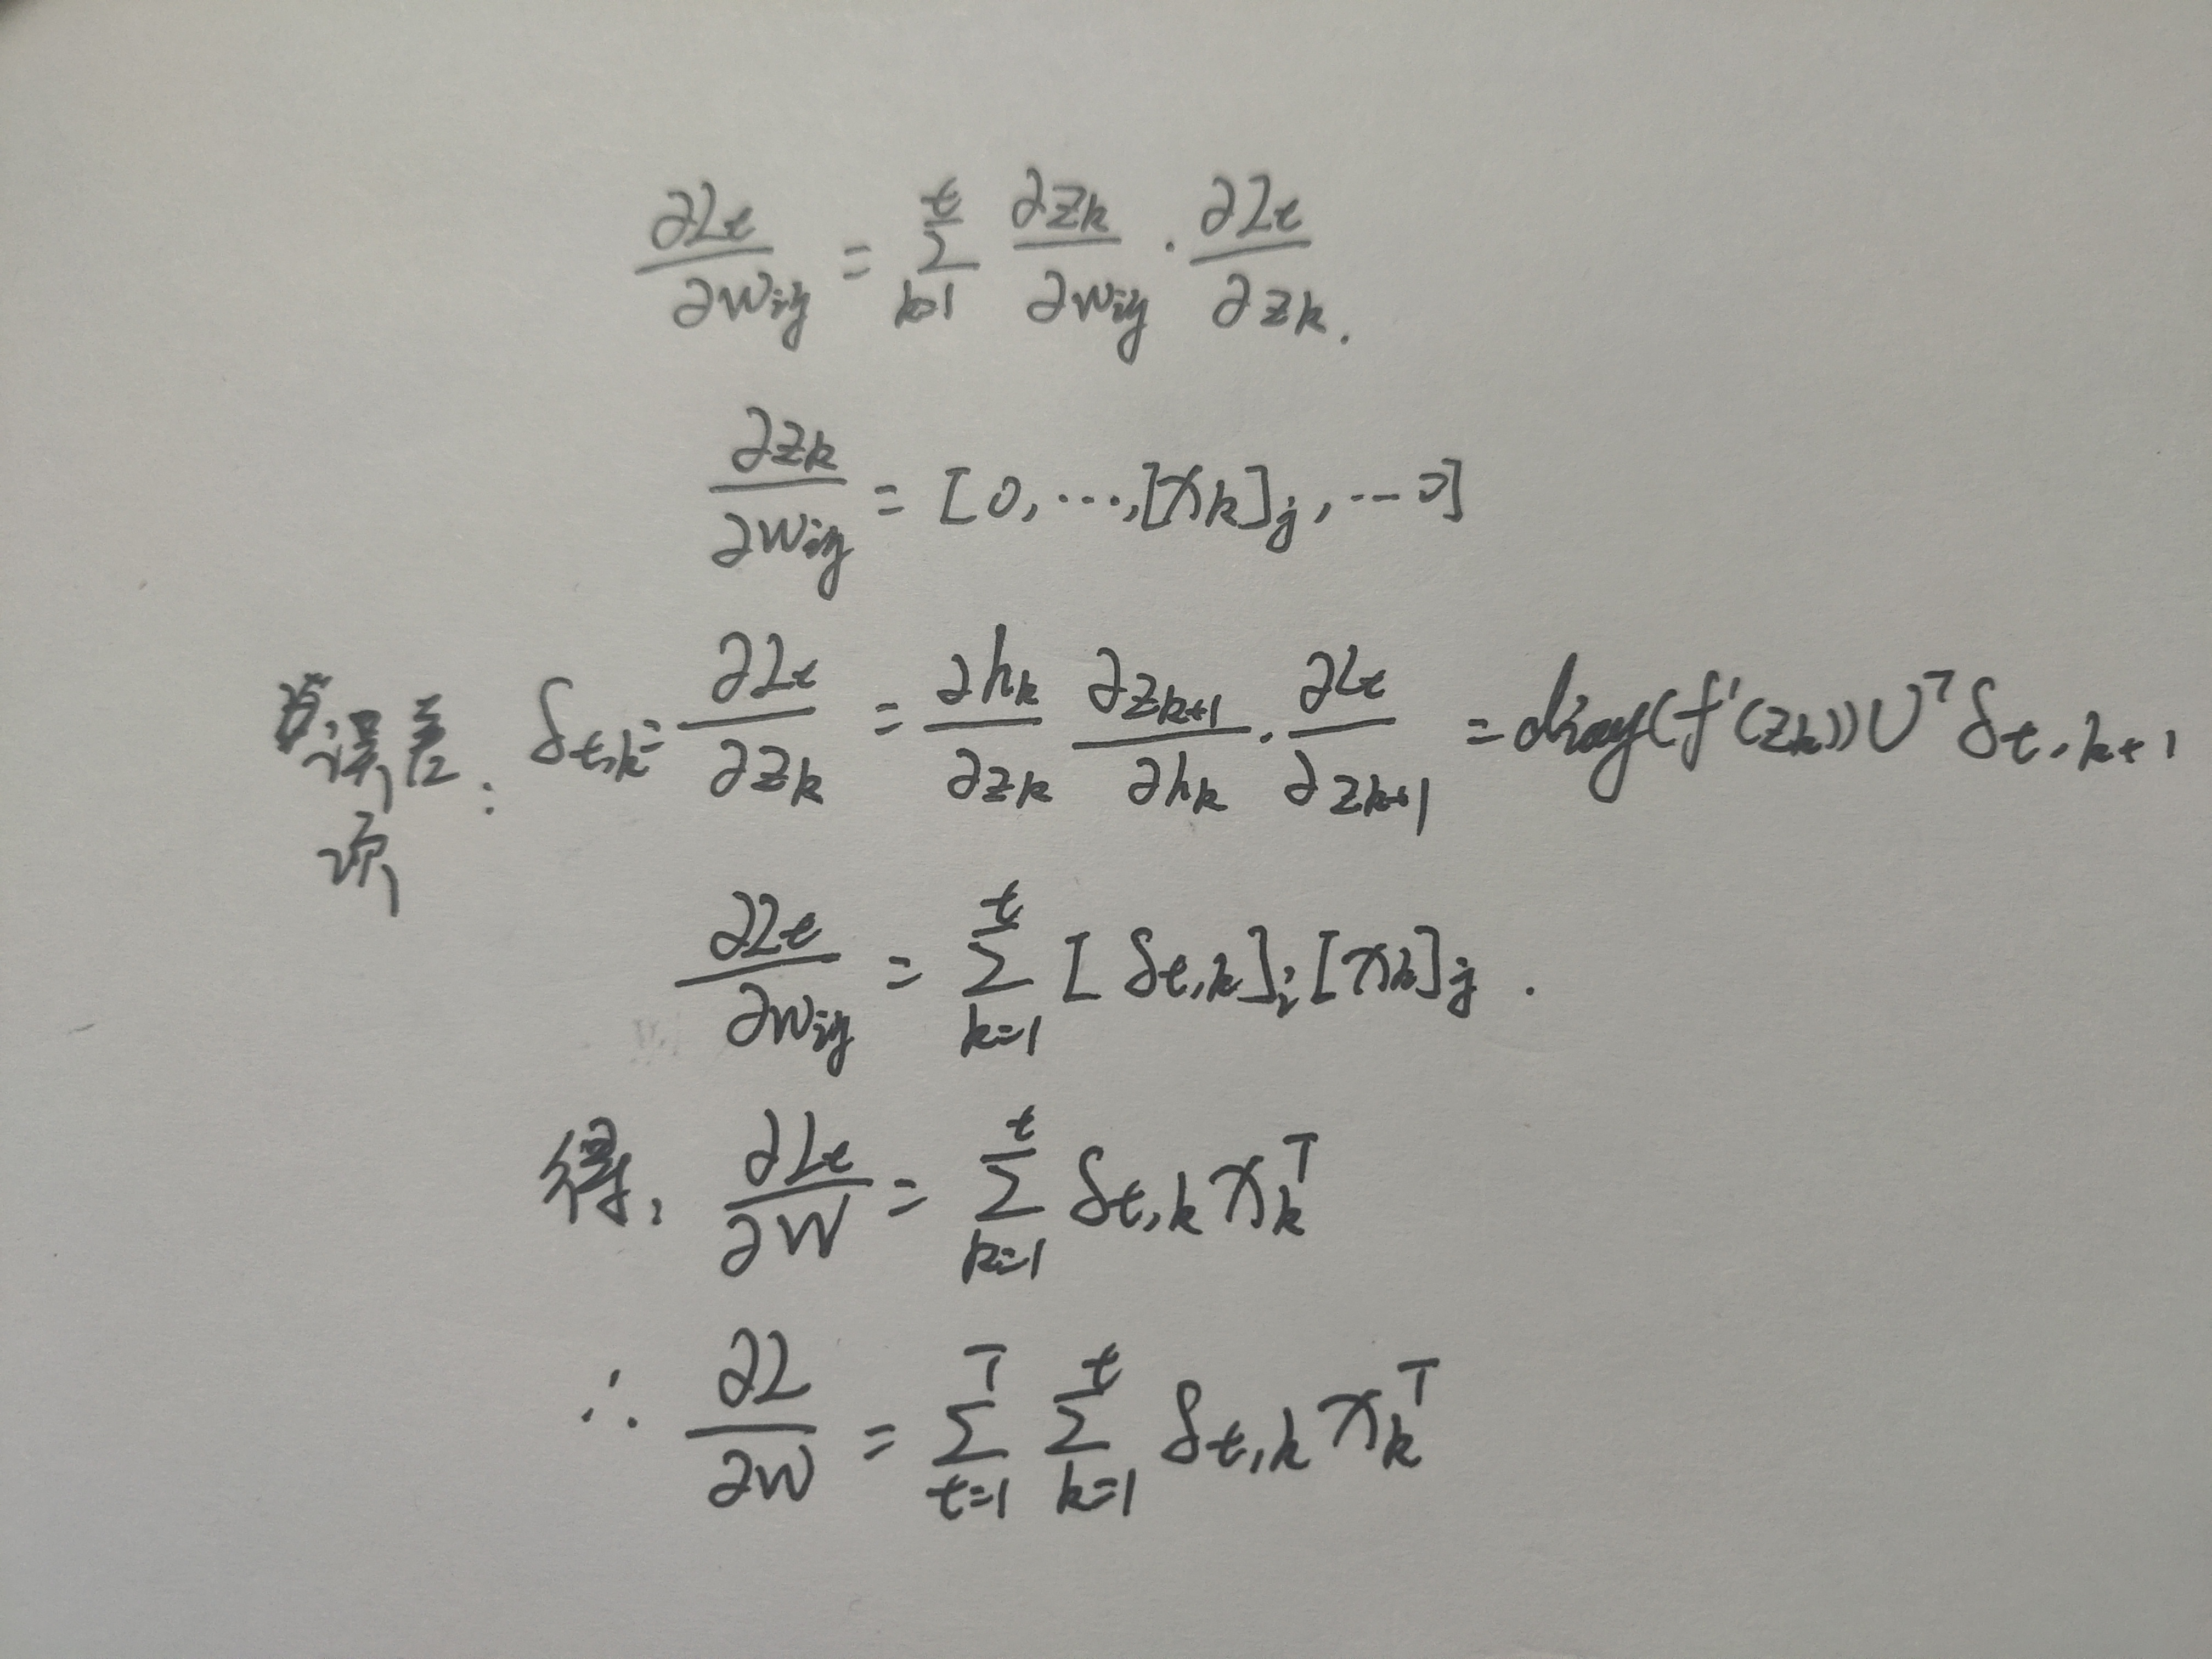 ∂Lt/∂wij = Σ_{k=1}^{t} ∂zk/∂wij · ∂Lt/∂zk.
∂zk/∂wij = [0, ···, [xk]j, ··· 0]
误差项: δt,k = ∂Lt/∂zk = ∂hk/∂zk ∂zk+1/∂hk · ∂Lt/∂zk+1 = diag(f'(zk)) U^T δt,k+1
∂Lt/∂wij = Σ_{k=1}^{t} [δt,k]i [xk]j .
得, ∂Lt/∂W = Σ_{k=1}^{t} δt,k xk^T
∴ ∂L/∂W = Σ_{t=1}^{T} Σ_{k=1}^{t} δt,k xk^T